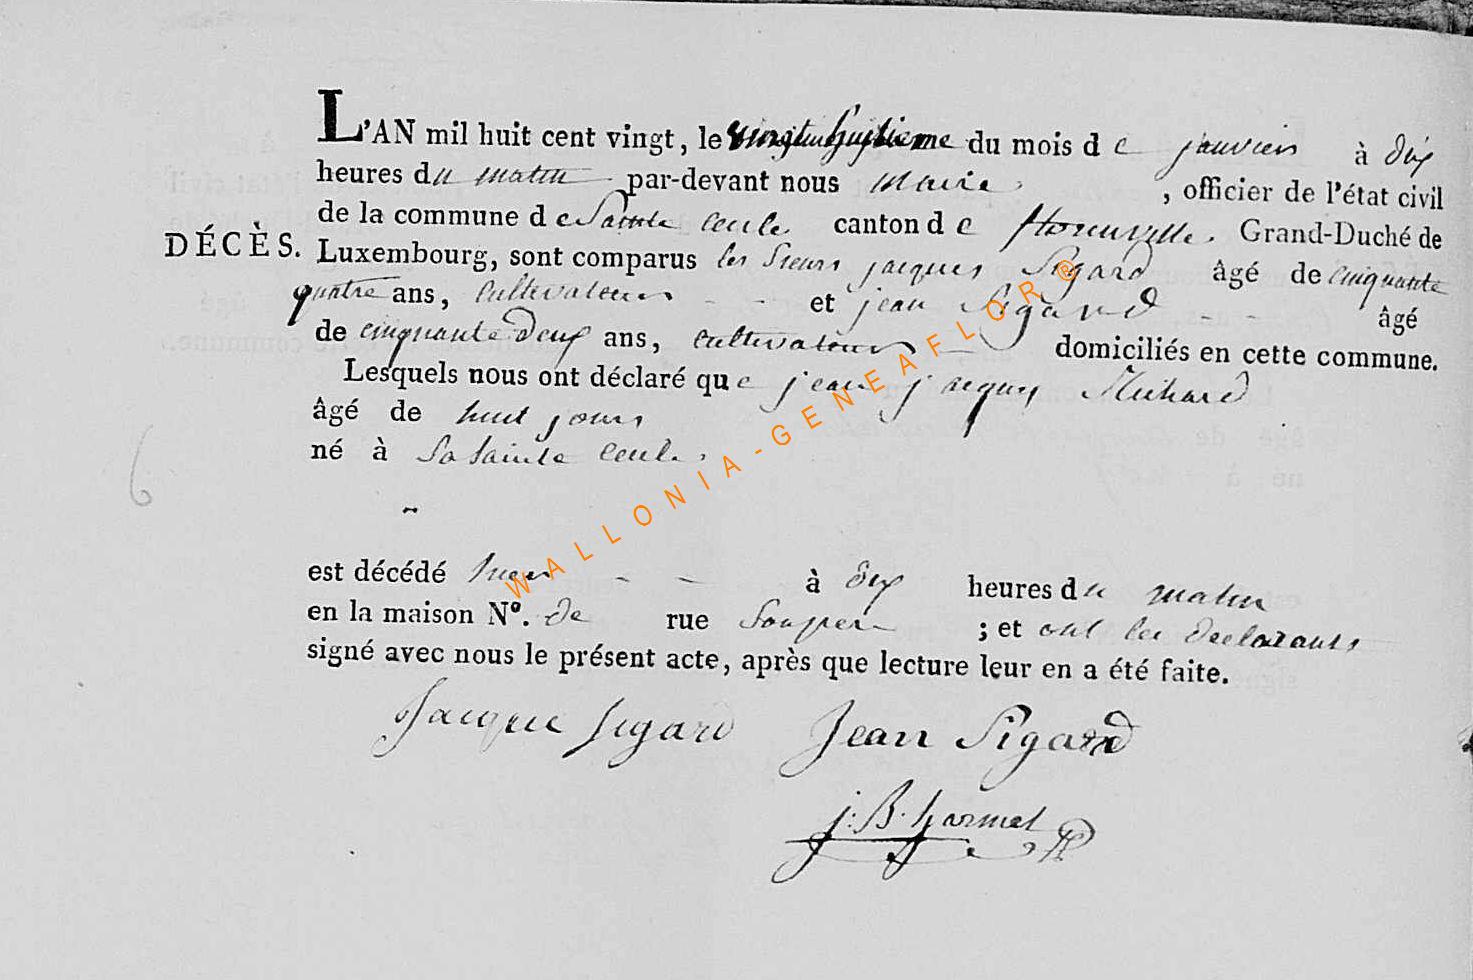 L'AN mil huit cent vingt, le vingt huitieme du mois de janvier à dix
heures du matin par-devant nous Maire, officier de l'état civil
de la commune de Sainte Cecile canton de Florenville. Grand-Duché de
DÉCÈS. Luxembourg, sont comparus les Sieurs jacques Sigard âgé de cinquante
quatre ans, cultivateur - - et jean Sigard - - âgé
de cinquante deux ans, cultivateur - domiciliés en cette commune.
Lesquels nous ont déclaré que jean jacques Michard
âgé de huit jours
né à Sainte Cecile.
6
est décédé hier - - à dix heures du matin
en la maison N°. de rue ; et ont les declarants
signé avec nous le présent acte, après que lecture leur en a été faite.
Jacque Sigard Jean Sigard
j: B. harmel
WALLONIA-GENEAFLOR®